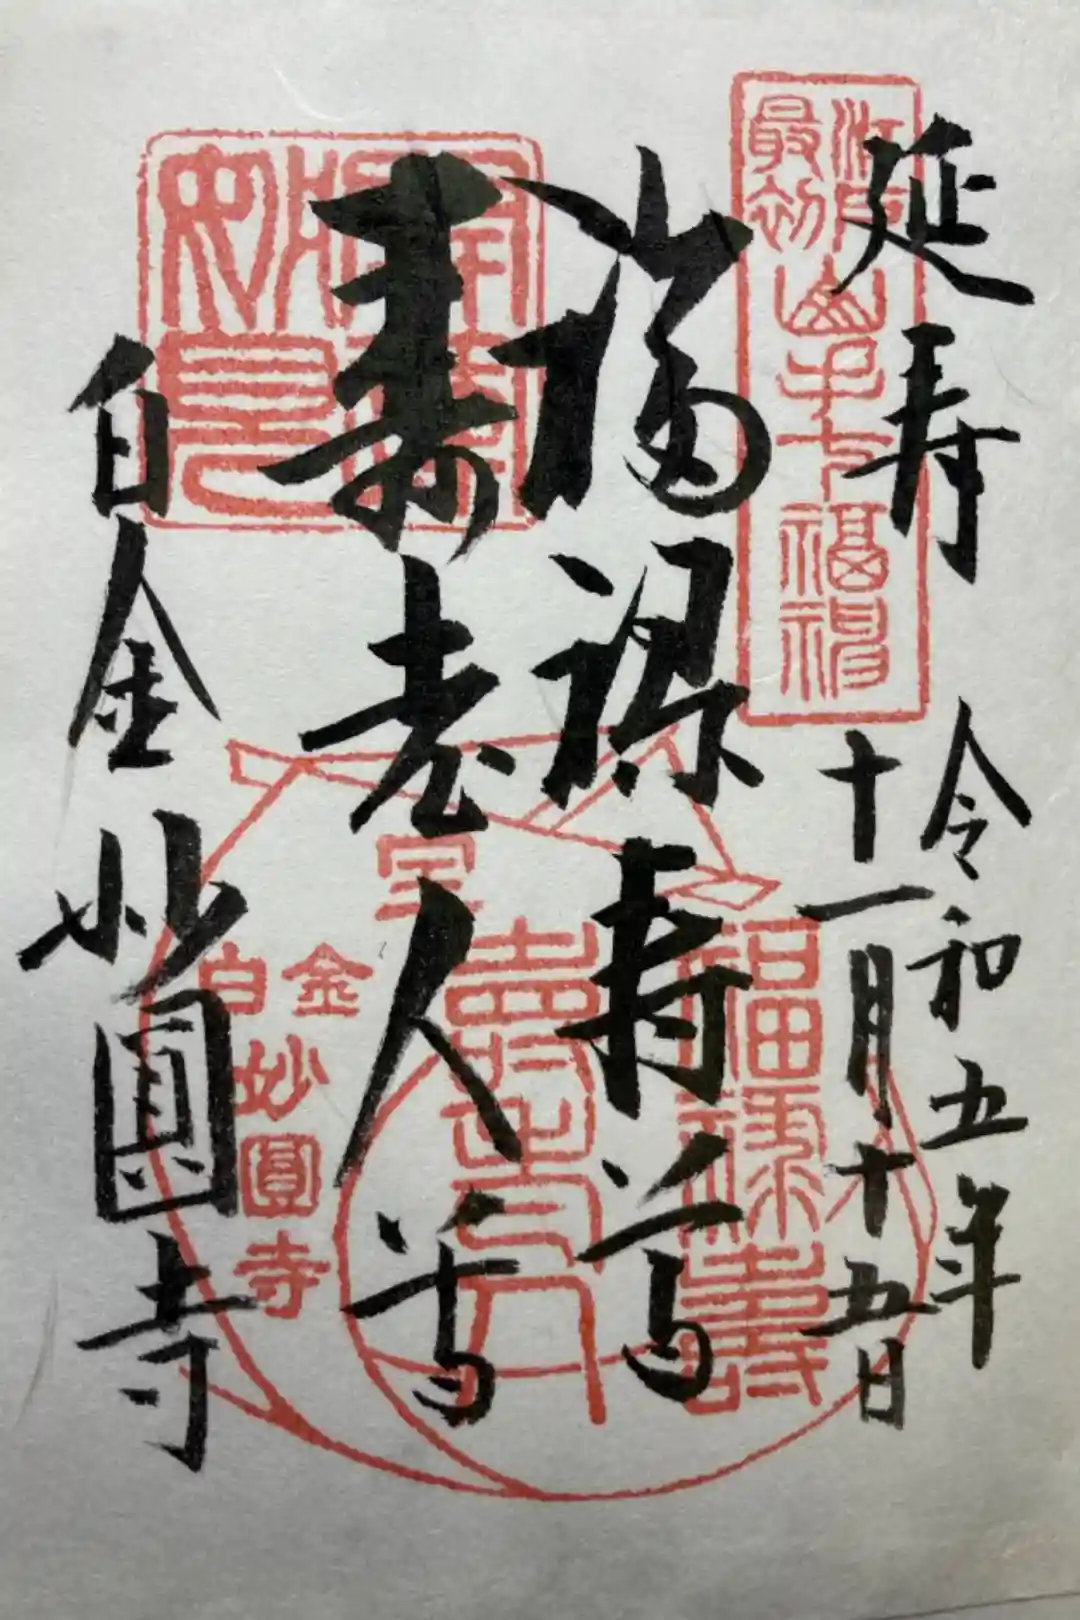 延寿
令和五年
十一月十五日
福禄寿尊
寿老人尊
白金 妙圓寺
江戸最初山手七福神
福禄壽
壽老人
宝
白金
妙圓寺